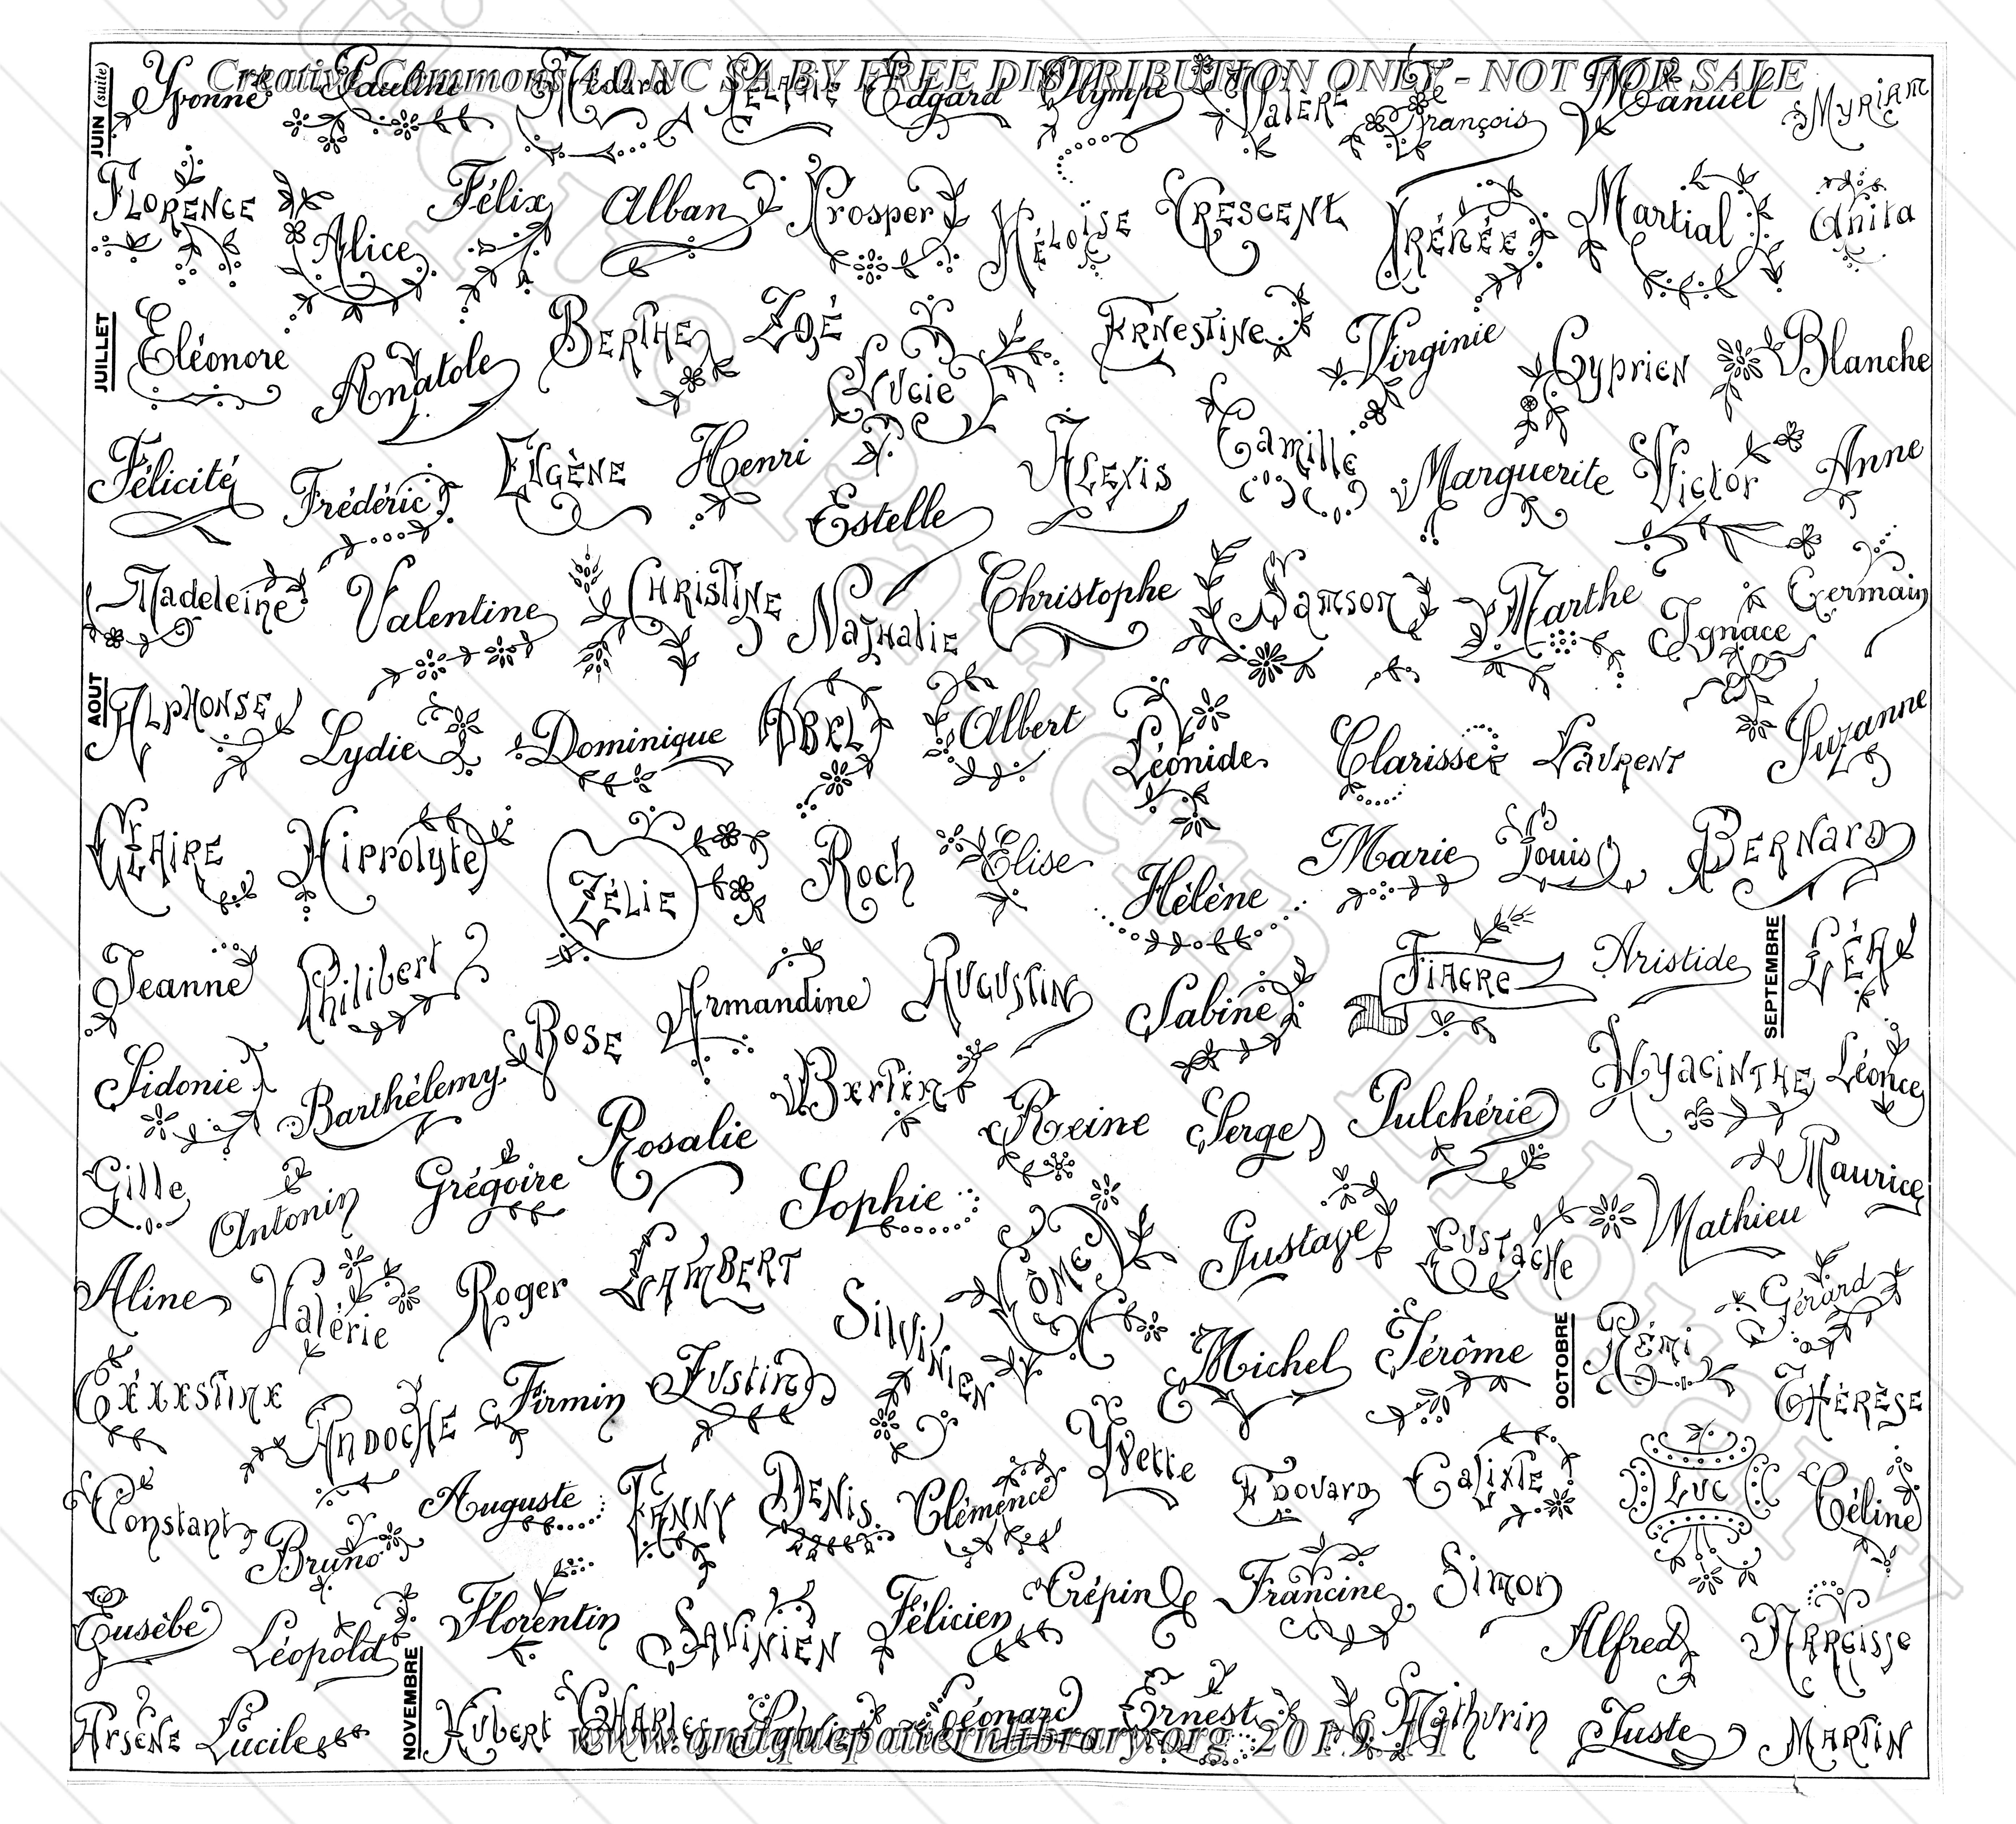 Creative Commons 4.0 NC SA BY FREE DISTRIBUTION ONLY - NOT FOR SALE
JUIN (suite)
Yvonne Pauline Médard PÉLAGIE Edgard Olympe VALÈRE François Manuel MYRIAM
FLORENCE Alice Félix Alban Prosper HÉLOÏSE CRESCENT IRÉNÉE Martial Anita
JUILLET
Eléonore Anatole BERTHE ZOÉ Lucie ERNESTINE Virginie Cyprien Blanche
Félicité Frédéric EUGÈNE Henri Estelle ALEXIS Camille Marguerite Victor Anne
Madeleine Valentine CHRISTINE NATHALIE Christophe Samson Marthe Ignace Germain
AOUT
ALPHONSE Lydie Dominique ABEL Albert Léonide Clarisse LAURENT Suzanne
CLAIRE Hippolyte ZÉLIE Roch Elise Hélène Marie Louis BERNARD
Jeanne Philibert ROSE Armandine AUGUSTIN Sabine FIACRE Aristide
SEPTEMBRE
LÉA
Sidonie Barthélemy Rosalie Bertin Reine Serge Pulchérie HYACINTHE Léonce
Gille Antonin Grégoire Sophie CÔME Gustave EUSTACHE Mathieu Maurice
Aline Valérie Roger LAMBERT SILVINIEN Michel Jérôme
OCTOBRE
Rémi Gérard
CÉLESTINE ANDOCHE Firmin Justin Yvette THÉRÈSE
Constant Bruno Auguste FANNY DENIS Clémence Edouard Calixte LUC Céline
Eusèbe Léopold Florentin SAVINIEN Félicien Crépin Francine Simon Alfred NARCISSE
ARSÈNE Lucile
NOVEMBRE
Hubert CHARLES Sylvie Léonard Ernest Mathurin Juste MARTIN
www.antiquepatternlibrary.org 2019.11
Antique Pattern Library